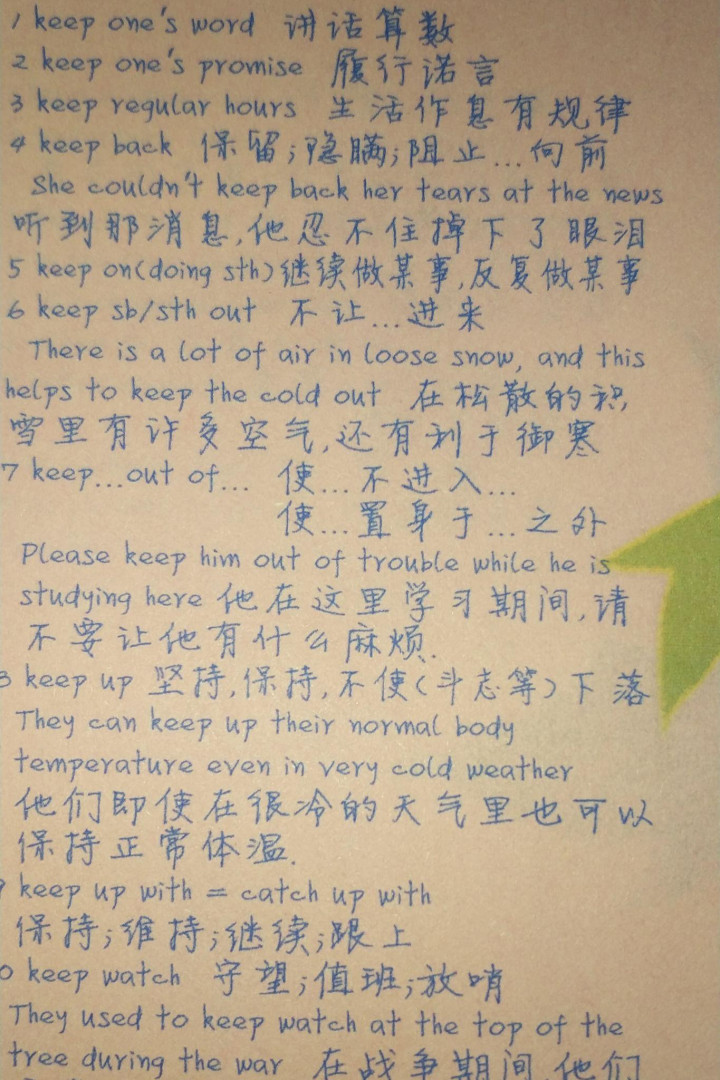 1 keep one's word 讲话算数
2 keep one's promise 履行诺言
3 keep regular hours 生活作息有规律
4 keep back 保留;隐瞒;阻止...向前
She couldn't keep back her tears at the news
听到那消息,他忍不住掉下了眼泪
5 keep on(doing sth)继续做某事,反复做某事
6 keep sb/sth out 不让...进来
There is a lot of air in loose snow, and this
helps to keep the cold out 在松散的积
雪里有许多空气,还有利于御寒
7 keep...out of... 使...不进入...
使...置身于...之外
Please keep him out of trouble while he is
studying here 他在这里学习期间,请
不要让他有什么麻烦.
8 keep up 坚持,保持,不使(斗志等)下落
They can keep up their normal body
temperature even in very cold weather
他们即使在很冷的天气里也可以
保持正常体温.
9 keep up with = catch up with
保持;维持;继续;跟上
0 keep watch 守望;值班;放哨
They used to keep watch at the top of the
tree during the war 在战争期间他们